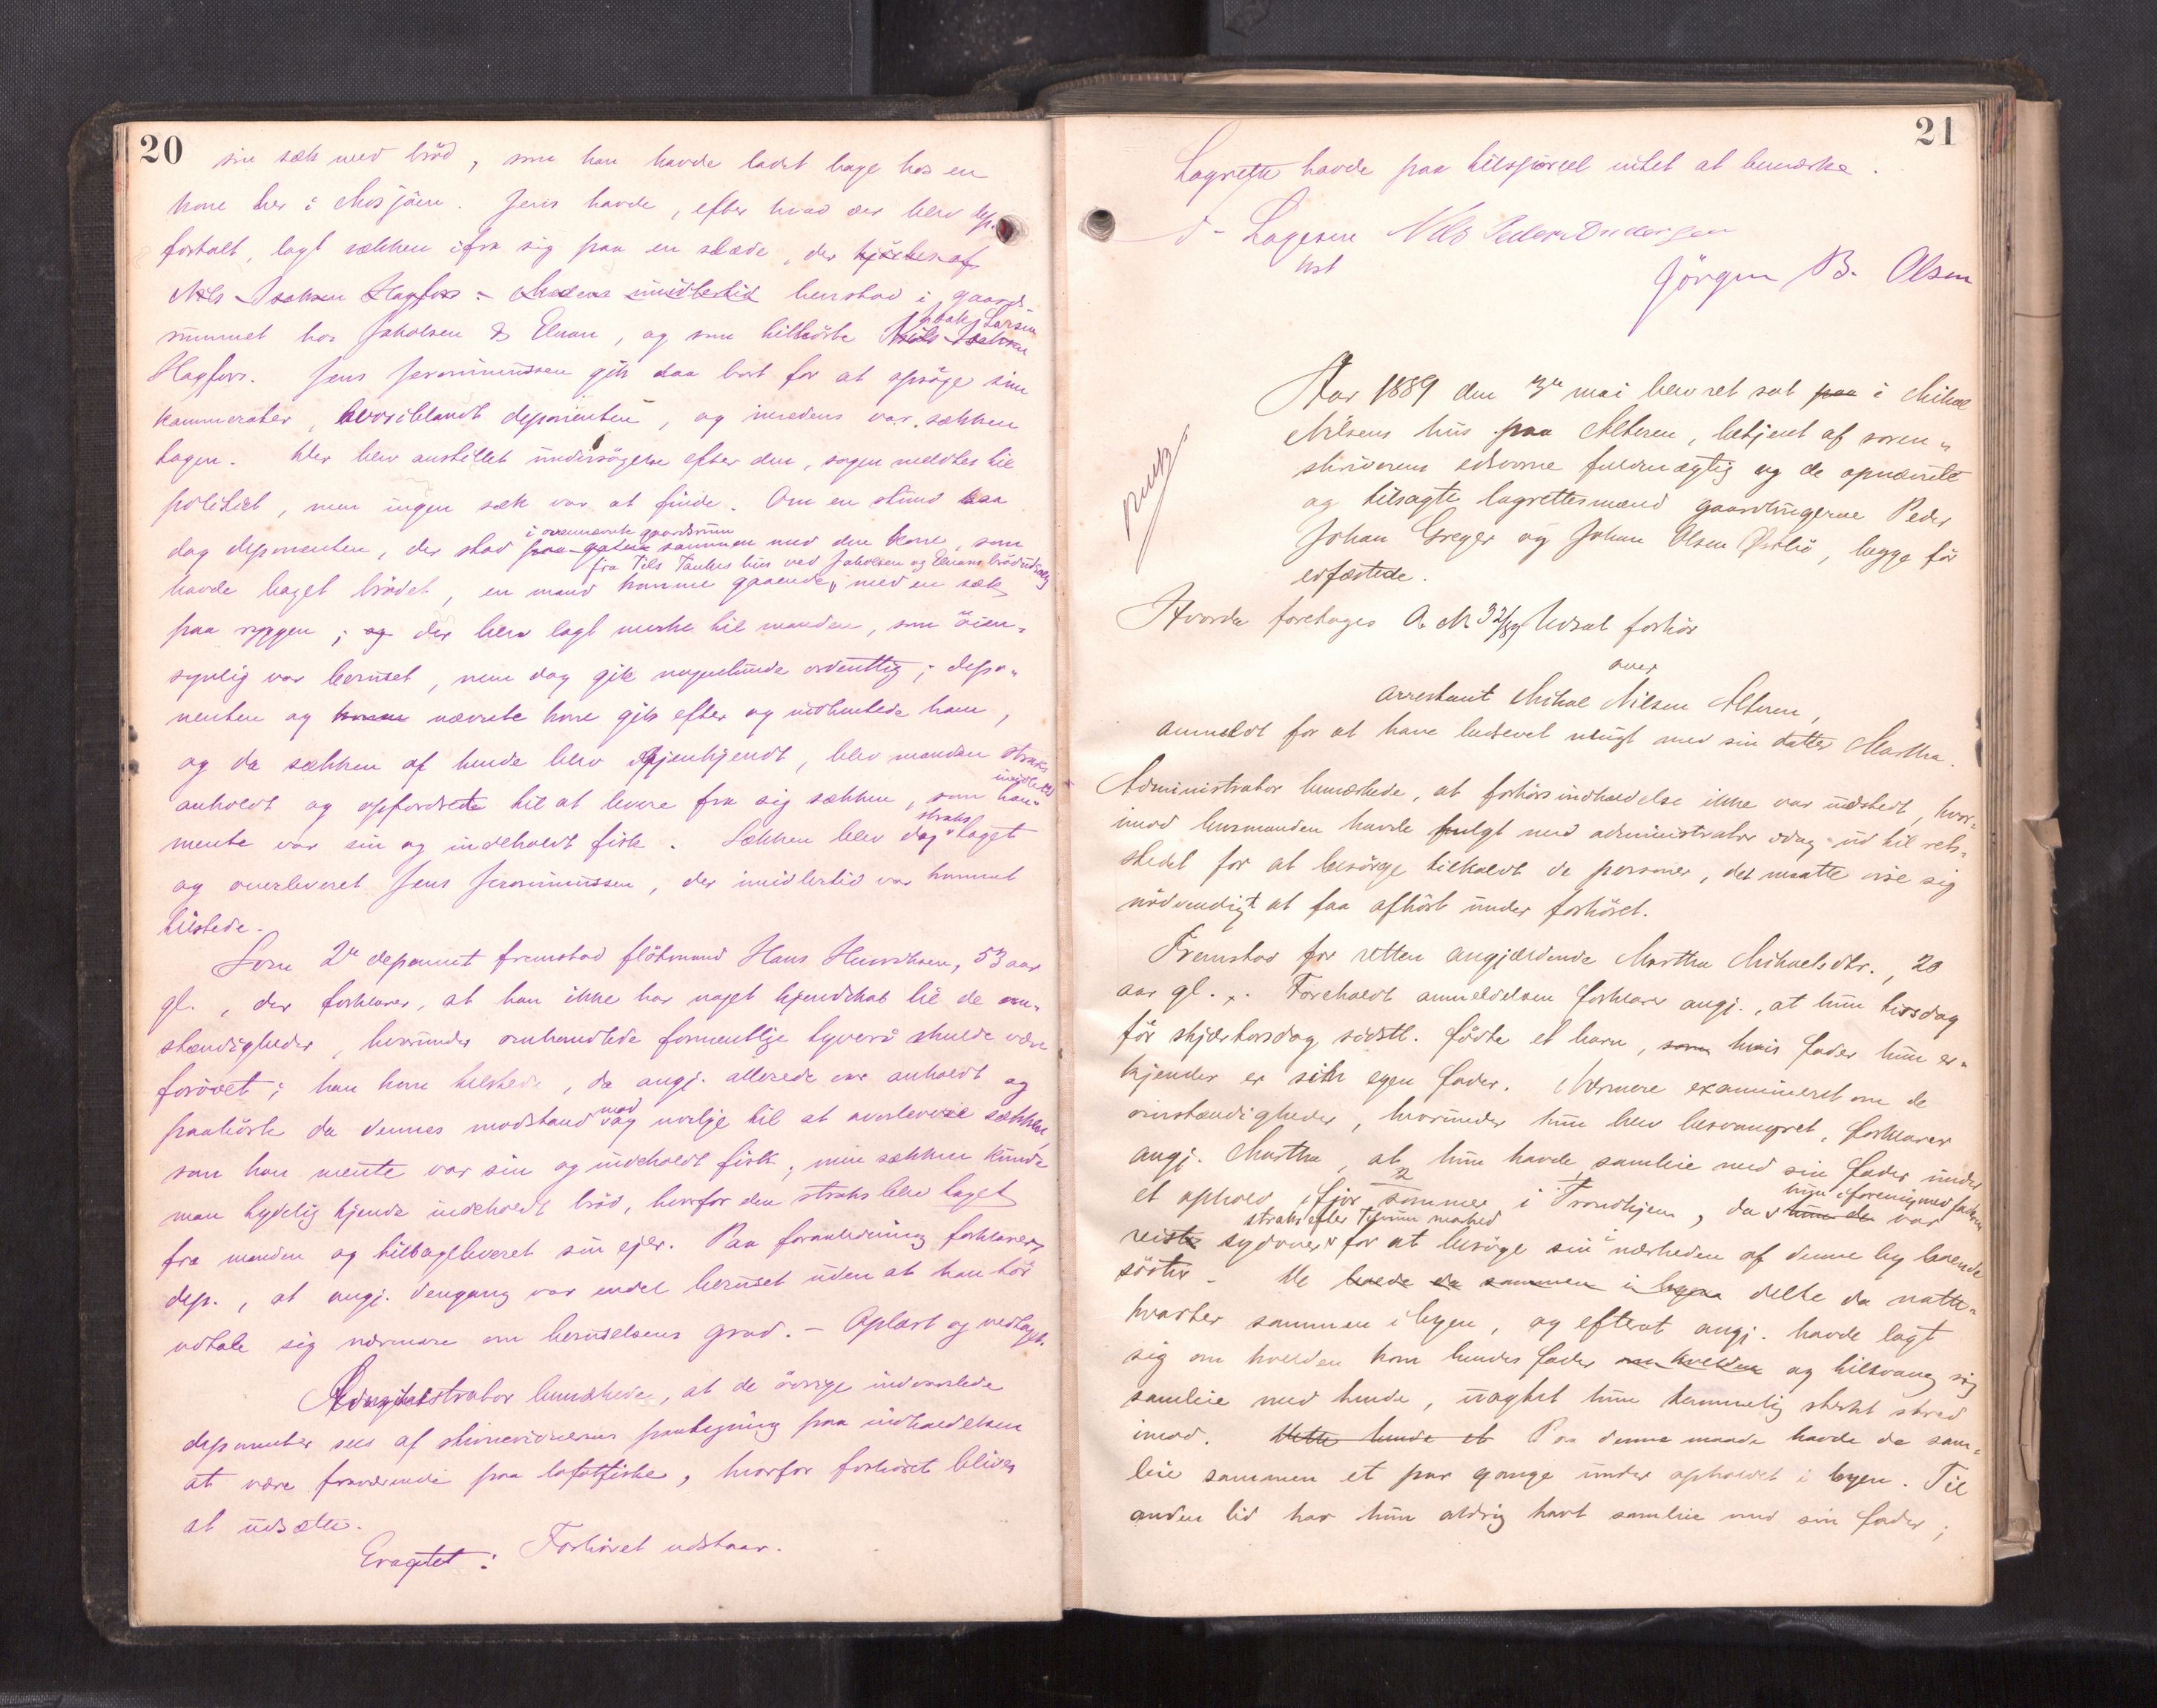 20
sin sæk med bröd, som han havde ladet bage hos en
kone her i Mosjöen. Jens havde, efter hvad der blev dep.
fortalt, lagt sækken ifra sig paa en slæde, der
Nils Isaksen Hagfors imidlertid henstod i gaards-
rummet hos Jakobsen & Enan, og som tilhörte Isak Larsen
Hagfors. Jens Jeronimussen gik saa bort for at opsöge sine
kammerater, hvoriblandt deponenten, og imedens var sækken
tagen. Der blev anstillet undersögelse efter den, sagen meldtes til
politiet, men ingen sæk var at finde. Om en stund saa
i ovennævnte gaardsrum
dog deponenten, der stod paa gaden sammen med den kone, som
fra Nils Tankes hus ved Jakobsen og Enans brödudsalg
havde baget brödet, en mand komme gaaende, med en sæk
paa ryggen; og der blev lagt merke til manden, som öien-
synlig var beruset, men dog gik nogenlunde ordentlig; depo-
nenten og konen nævnte kone gik efter og indhentede ham,
og da sækken af hende blev gjenkjendt, blev manden straks
anholdt og opfordrede til at levere fra sig sækken, som han imidlertid
mente var sin og indeholdt fisk. Sækken blev dog straks taget
og overleveret Jens Jeronimussen, der imidlertid var kommet
tilstede.
Som 2n deponent fremstod flötmand Hans Henriksen, 53 aar
gl., der forklarer, at han ikke har noget kjendskab til de om-
stændigheder, hvorunder omhandlede formentlige tyveri skulde være
forövet; han kom tilstede, da angj. allerede var anholdt og
paahörte da dennes modstand mod og uvilje til at overlevere sækken,
som han mente var sin og indeholdt fisk; men sækken kunde
man tydelig kjende indeholdt bröd, hvorfor den straks blev taget
fra manden og tilbageleveret sin ejer. Paa foranledning forklarer
dep., at angj. dengang var endel beruset uden at han tör
udtale sig nærmere om beruselsens grad. – Oplæst og vedtaget.
Administrator bemærkede, at de övrige indvarslede
deponenter sees af stevnevidnernes paategning paa indkaldelsen
at være fraværende paa lofotfiske, hvorfor forhöret bliver
at udsætte.
Eragtet: Forhöret udstaar.
21
Lagrette havde paa tilspörsel intet at bemærke.
Nils Pedersen
Jörgen B. Olsen
Aar 1889 den 3n mai blev ret sat paa i Mikal
Nilsens hus paa Alteren, betjent af soren-
skriverens edsvorne fuldmægtig og de opnævnte
og tilsagte lagrettesmænd gaardbrugerne Peder
Johan Greger og Johan Olsen Östlis, begge för
edfæstede.
Hvorda foretoges A. No 32/89 Udsat forhör
over
arrestant Mikal Nilsen Alteren,
anmeldt for at have bedrevet utugt med sin datter Martha.
Administrator bemærkede, at forhörsindkaldelse ikke var udstedt, hvor-
imod lensmanden havde fulgt med administrator idag ud til rets-
stedet for at besörge tilkaldt de personer, det maatte vise sig
nödvendigt at faa afhört under forhöret.
Fremstod for retten angjældende Martha Mikaelsdtr., 20
aar gl. Foreholdt anmeldelsen forklarer angj., at hun tirsdag
för skjærtorsdag sidstl. födte et barn, som hvis fader hun er-
kjender er sin egen fader. Nærmere examineret om de
omstændigheder, hvorunder hun blev besvangret, forklarer
angj. Martha, at hun havde samleie med sin fader under
et ophold ifjor sommer i Trondhjem, da hun i forening med faderen var
straks efter 
reist sydover for at besöge sin i nærheden af denne by boende
söster – De boede da sammen i byen delte da natte-
kvarter sammen i byen, og efterat angj. havde lagt
sig om kvelden kom hendes fader om kvelden og tiltvang sig
samleie med hende, uagtet hun temmelig sterkt stred
imod. Dette hende et Paa denne maade havde de sam-
leie sammen et par gange under opholdet i byen. Til
anden tid har hun aldrig havt samleie med sin fader;